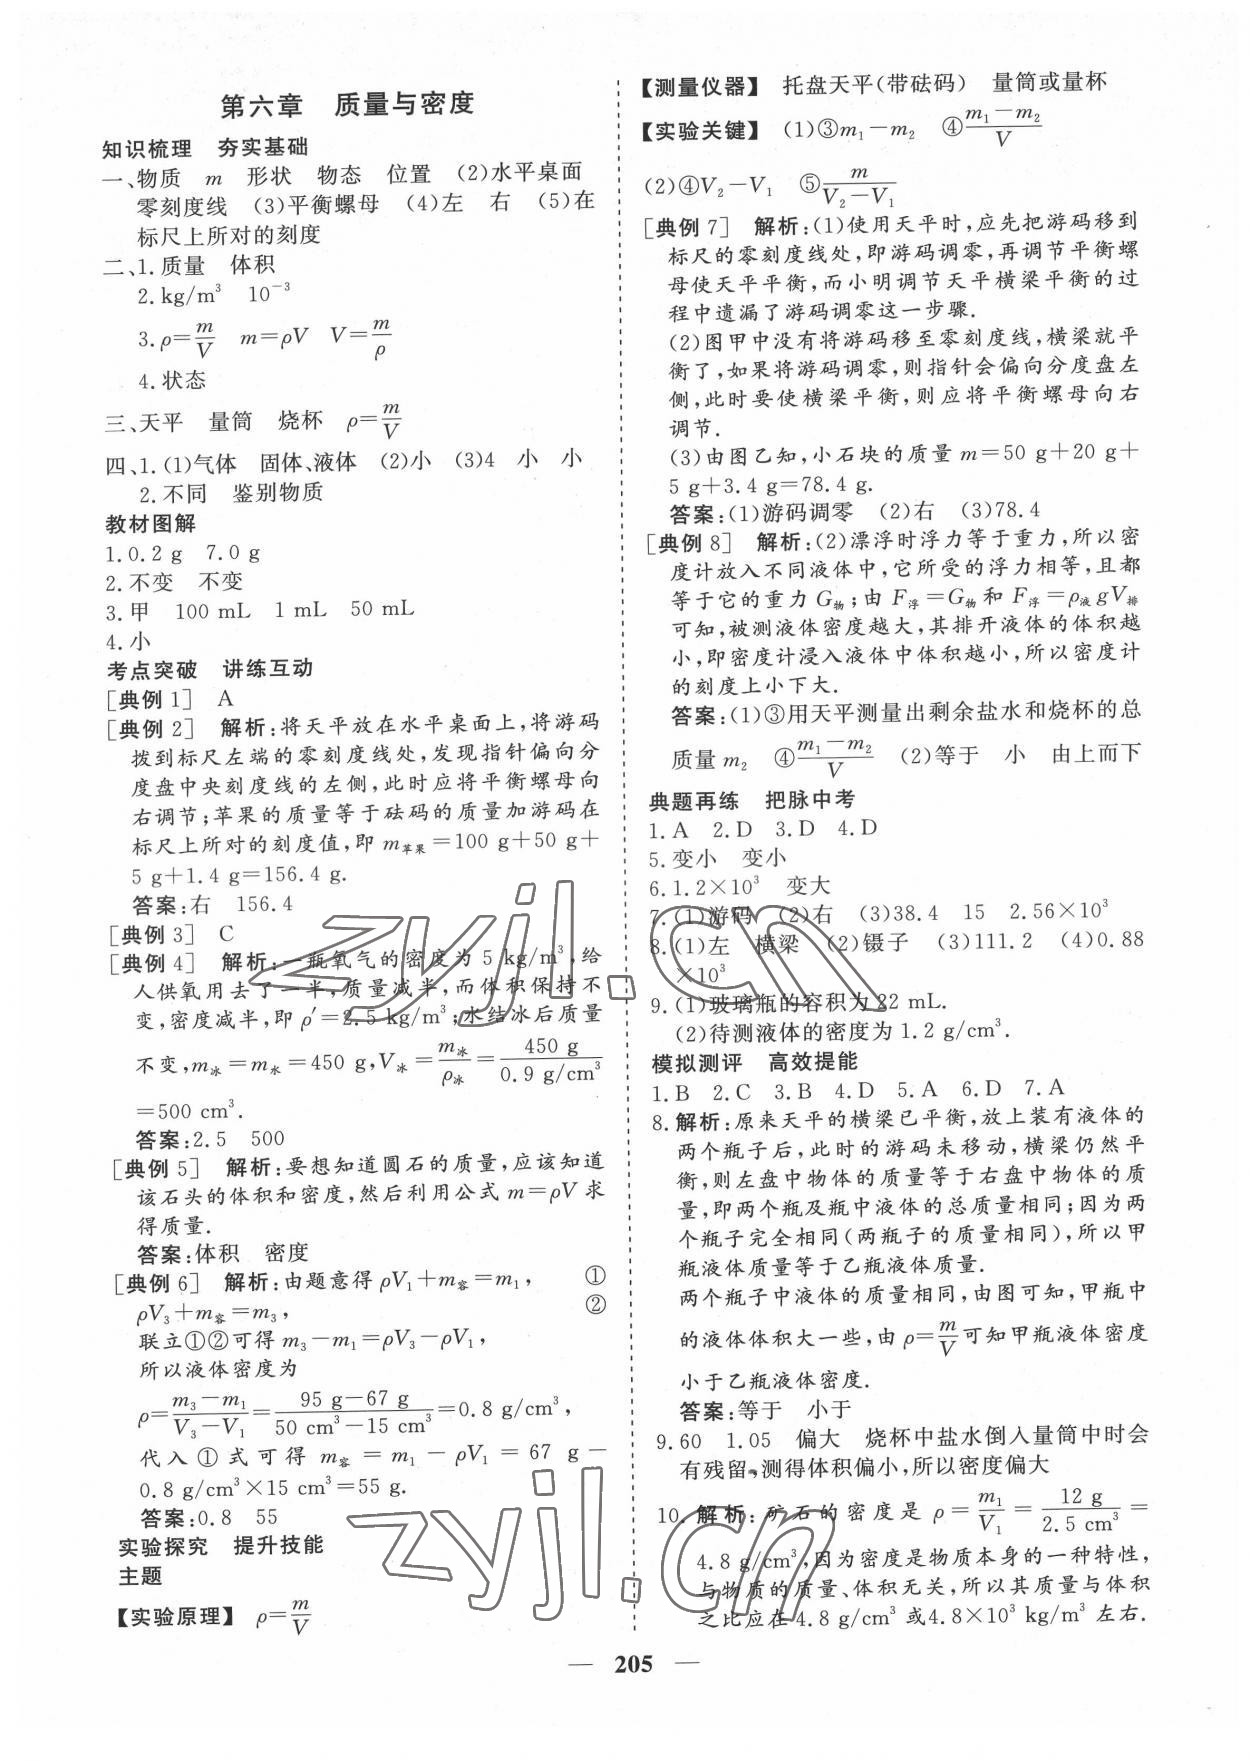 第六章 质量与密度
知识梳理 夯实基础
一、物质 m 形状 物态 位置 (2)水平桌面
零刻度线 (3)平衡螺母 (4)左 右 (5)在
标尺上所对的刻度
二、1.质量 体积
2.kg/m³ 10⁻³
3.ρ=m/V m=ρV V=m/ρ
4.状态
三、天平 量筒 烧杯 ρ=m/V
四、1.(1)气体 固体、液体 (2)小 (3)4 小 小
2.不同 鉴别物质
教材图解
1.0.2 g 7.0 g
2.不变 不变
3.甲 100 mL 1 mL 50 mL
4.小
考点突破 讲练互动
[典例1] A
[典例2] 解析:将天平放在水平桌面上,将游码
拨到标尺左端的零刻度线处,发现指针偏向分
度盘中央刻度线的左侧,此时应将平衡螺母向
右调节;苹果的质量等于砝码的质量加游码在
标尺上所对的刻度值,即 m苹果=100 g+50 g+
5 g+1.4 g=156.4 g.
答案:右 156.4
[典例3] C
[典例4] 解析:一瓶氧气的密度为 5 kg/m³,给
人供氧用去了一半,质量减半,而体积保持不
变,密度减半,即 ρ′=2.5 kg/m³;水结冰后质量
不变,m冰=m水=450 g,V冰=m冰/ρ冰=450 g/0.9 g/cm³
=500 cm³.
答案:2.5 500
[典例5] 解析:要想知道圆石的质量,应该知道
该石头的体积和密度,然后利用公式 m=ρV 求
得质量.
答案:体积 密度
[典例6] 解析:由题意得 ρV₁+m容=m₁, ①
ρV₃+m容=m₃, ②
联立①②可得 m₃-m₁=ρV₃-ρV₁,
所以液体密度为
ρ=(m₃-m₁)/(V₃-V₁)=(95 g-67 g)/(50 cm³-15 cm³)=0.8 g/cm³,
代入①式可得 m容=m₁-ρV₁=67 g-
0.8 g/cm³×15 cm³=55 g.
答案:0.8 55
实验探究 提升技能
主题
【实验原理】 ρ=m/V
【测量仪器】 托盘天平(带砝码) 量筒或量杯
【实验关键】 (1)③m₁-m₂ ④(m₁-m₂)/V
(2)④V₂-V₁ ⑤m/(V₂-V₁)
[典例7] 解析:(1)使用天平时,应先把游码移到
标尺的零刻度线处,即游码调零,再调节平衡螺
母使天平平衡,而小明调节天平横梁平衡的过
程中遗漏了游码调零这一步骤.
(2)图甲中没有将游码移至零刻度线,横梁就平
衡了,如果将游码调零,则指针会偏向分度盘左
侧,此时要使横梁平衡,则应将平衡螺母向右
调节.
(3)由图乙知,小石块的质量 m=50 g+20 g+
5 g+3.4 g=78.4 g.
答案:(1)游码调零 (2)右 (3)78.4
[典例8] 解析:(2)漂浮时浮力等于重力,所以密
度计放入不同液体中,它所受的浮力相等,且都
等于它的重力 G物;由 F浮=G物 和 F浮=ρ液gV排
可知,被测液体密度越大,其排开液体的体积越
小,即密度计浸入液体中体积越小,所以密度计
的刻度上小下大.
答案:(1)③用天平测量出剩余盐水和烧杯的总
质量 m₂ ④(m₁-m₂)/V (2)等于 小 由上而下
典题再练 把脉中考
1.A 2.D 3.D 4.D
5.变小 变小
6.1.2×10³ 变大
7.(1)游码 (2)右 (3)38.4 15 2.56×10³
8.(1)左 横梁 (2)镊子 (3)111.2 (4)0.88
×10³
9.(1)玻璃瓶的容积为22 mL.
(2)待测液体的密度为1.2 g/cm³.
模拟测评 高效提能
1.B 2.C 3.B 4.D 5.A 6.D 7.A
8.解析:原来天平的横梁已平衡,放上装有液体的
两个瓶子后,此时的游码未移动,横梁仍然平
衡,则左盘中物体的质量等于右盘中物体的质
量,即两个瓶及瓶中液体的总质量相同;因为两
个瓶子完全相同(两瓶子的质量相同),所以甲
瓶液体质量等于乙瓶液体质量.
两个瓶子中液体的质量相同,由图可知,甲瓶中
的液体体积大一些,由 ρ=m/V 可知甲瓶液体密度
小于乙瓶液体密度.
答案:等于 小于
9.60 1.05 偏大 烧杯中盐水倒入量筒中时会
有残留,测得体积偏小,所以密度偏大
10.解析:矿石的密度是 ρ=m₁/V₁=12 g/2.5 cm³=
4.8 g/cm³,因为密度是物质本身的一种特性,
与物质的质量、体积无关,所以其质量与体积
之比应在4.8 g/cm³ 或4.8×10³ kg/m³ 左右.
— 205 —
zyjl.cn
zyjl.cn